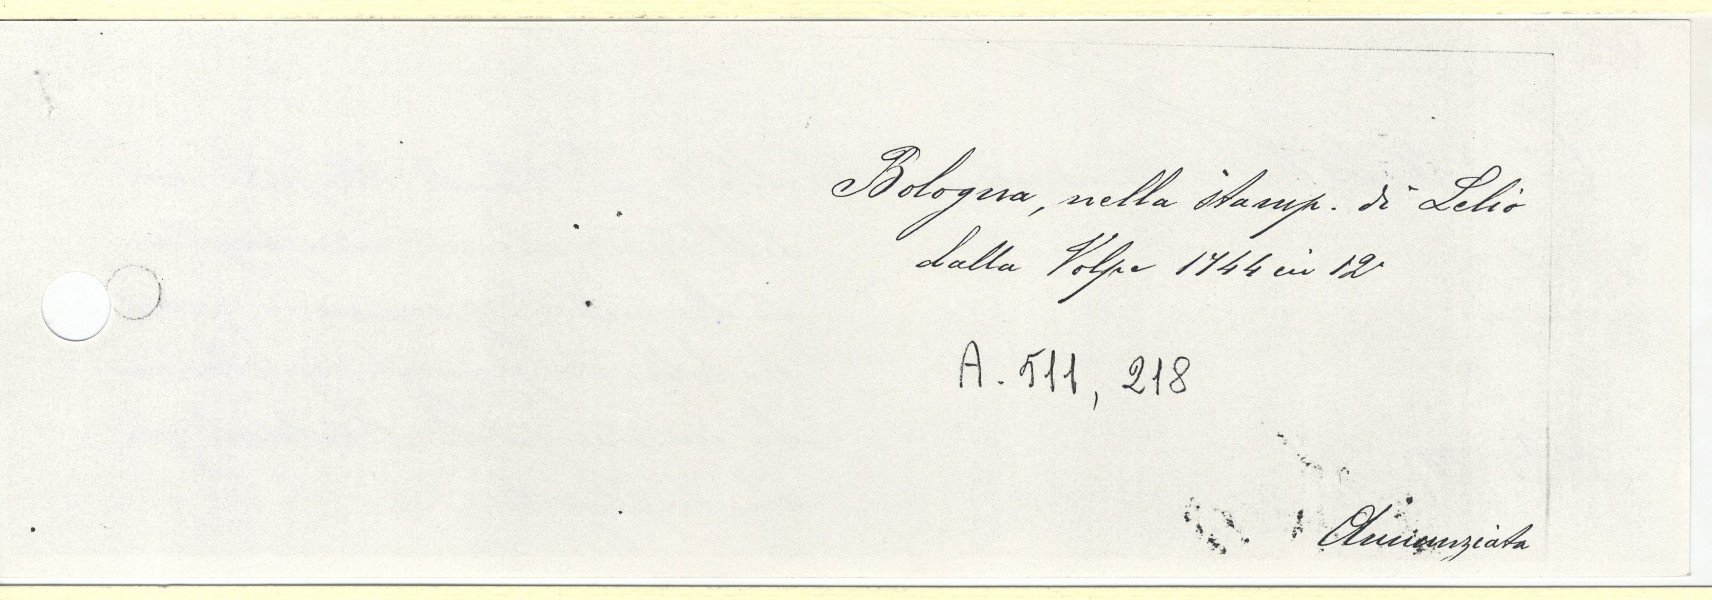 Bologna, nella stamp. di Lelio
dalla Volpe 1744 in 12°
A. 511, 218
Annunziata